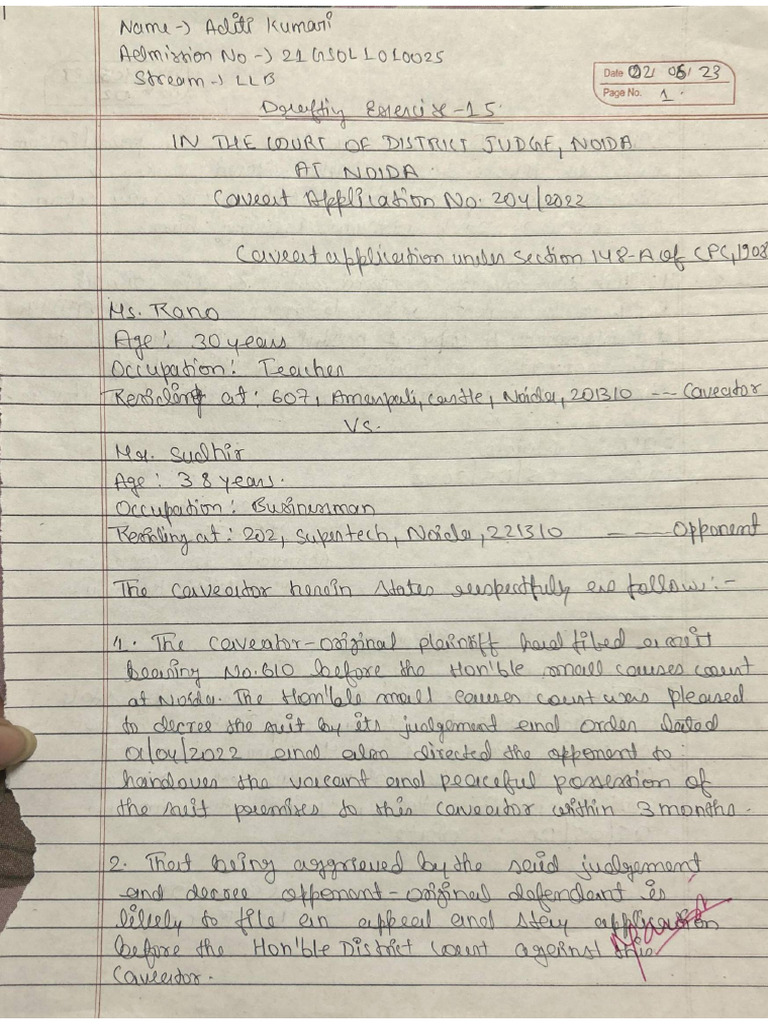 Name → Aditi Kumari
Admission No → 21GSOL1010025
Stream → LLB
Date 02/05/23
Page No. 1
Drafting Exercise-15
IN THE COURT OF DISTRICT JUDGE, NOIDA
AT NOIDA
Caveat Application No. 204/2022
Caveat application under section 148-A of CPC, 1908
Ms. Rano
Age: 30 years
Occupation: Teacher
Residing at: 607, Amarpali, castle, Noida, 201310 --- Caveator
VS.
Mr. Sudhir
Age: 38 years.
Occupation: Businessman
Residing at: 202, Supertech, Noida, 221310 --- Opponent
The caveator herein states respectfully as follow:-
1. The caveator-original plaintiff had filed a suit
bearing No. 610 before the Hon'ble small causes court
at Noida. The Hon'ble small causes court was pleased
to decree the suit by its judgement and order dated
01/04/2022 and also directed the opponent to
handover the vacant and peaceful possession of
the suit premises to this caveator within 3 months.
2. That being aggrieved by the said judgement
and decree opponent-original defendant is
likely to file an appeal and stay application
before the Hon'ble District Court against this
Caveator.